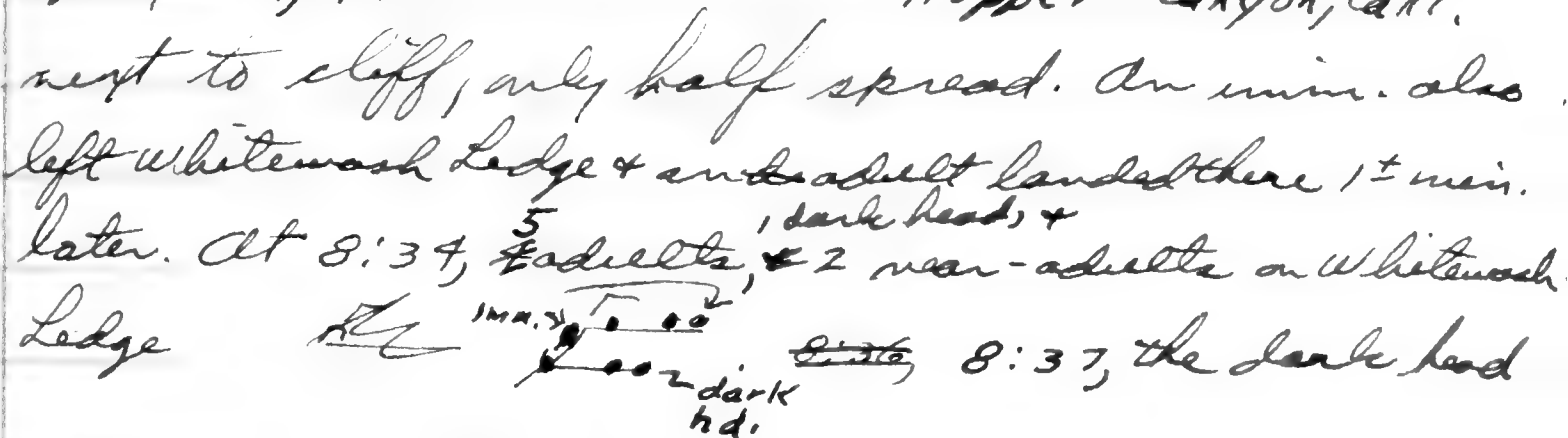 Hopper Canyon, Calif.
next to cliff, only half spread. An imm. also
left Whitewash Ledge & an adult landed there 1± min.
later. At 8:34, 5 adults, 1 dark head, & 2 near-adults on Whitewash
Ledge imm. 8:37, the dark head
dark
hd.